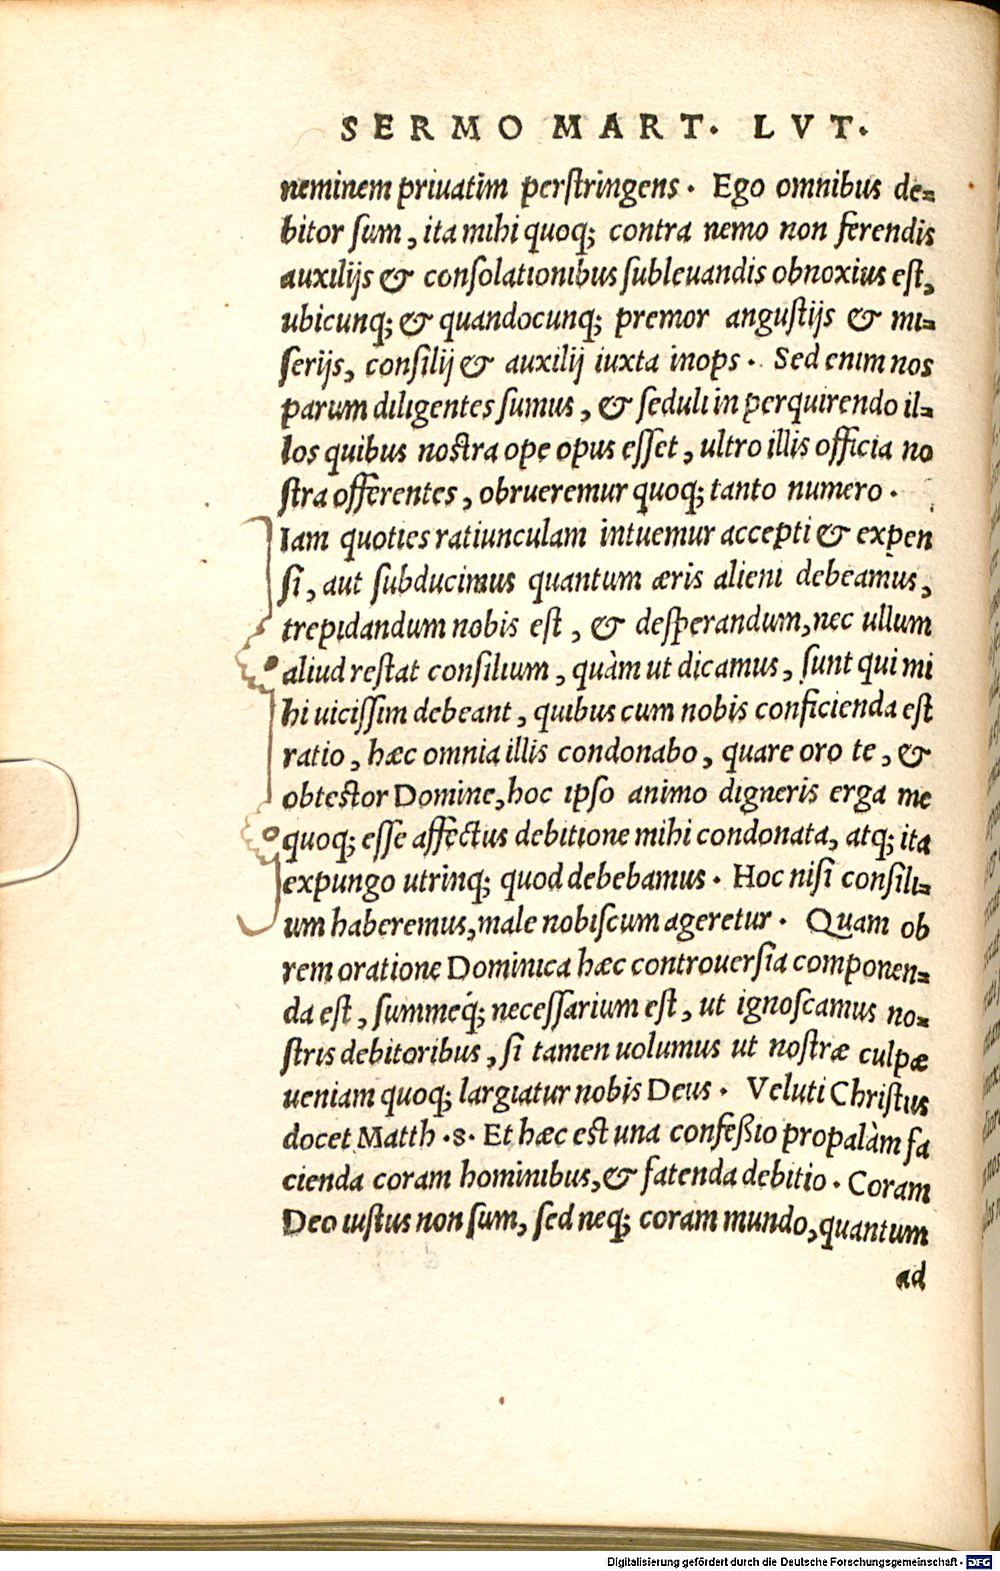 SERMO MART. LVT.
neminem priuatim perstringens. Ego omnibus de=
bitor sum, ita mihi quoq; contra nemo non ferendis
auxilijs & consolationibus subleuandis obnoxius est,
ubicunq; & quandocunq; premor angustijs & mi=
serijs, consilij & auxilij iuxta inops. Sed enim nos
parum diligentes sumus, & seduli in perquirendo il=
los quibus nostra ope opus esset, ultro illis officia no
stra offerentes, obrueremur quoq; tanto numero.
Iam quoties ratiunculam intuemur accepti & expen
si, aut subducimus quantum æris alieni debeamus,
trepidandum nobis est, & desperandum, nec ullum
aliud restat consilium, quàm ut dicamus, sunt qui mi
hi uicissim debeant, quibus cum nobis conficienda est
ratio, hæc omnia illis condonabo, quare oro te, &
obtestor Domine, hoc ipso animo digneris erga me
quoq; esse affectus debitione mihi condonata, atq; ita
expungo utrinq; quod debebamus. Hoc nisi consili=
um haberemus, male nobiscum ageretur. Quam ob
rem oratione Dominica hæc controuersia componen=
da est, summeq́; necessarium est, ut ignoscamus no=
stris debitoribus, si tamen uolumus ut nostræ culpæ
ueniam quoq; largiatur nobis Deus. Veluti Christus
docet Matth .8. Et hæc est una confeßio propalàm fa
cienda coram hominibus, & fatenda debitio. Coram
Deo iustus non sum, sed neq; coram mundo, quantum
ad
Digitalisierung gefördert durch die Deutsche Forschungsgemeinschaft - DFG